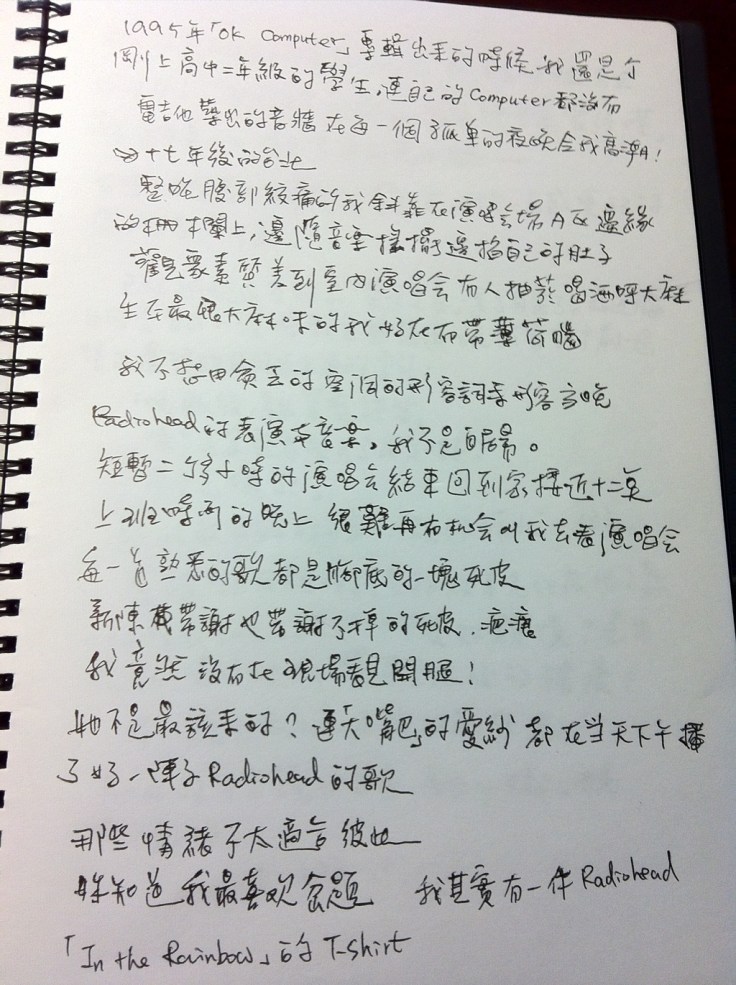 1995年「OK Computer」專輯出來的時候,我還是个
剛上高中二年級的學生,連自己的Computer都沒有
電吉他築出的音牆在每一個孤單的夜晚令我高潮!
十七年後的台北
整晚腹部絞痛的我斜靠在演唱会場A区邊緣
的柵欄上,邊隨音樂搖擺邊掐自己的肚子
觀眾素質差到室內演唱会有人抽菸喝酒呼大麻
生平最恨大麻味的我好在有帶薄荷腦
我不想用貧乏的空洞的形容詞來形容方晚
Radiohead的表演和音樂,我不是白居易。
短暫二個多小時的演唱会結束回到家接近十二点
上班時間的晚上 很難再有机会叫我去看演唱会
每一首熟悉的歌都是腳底的一塊死皮
新陳代謝也帶謝不掉的死皮.疤痕
我竟然沒有在現場看見開腿!
她不是最該來的?連「大嘴巴」的愛紗都在当天下午播
了好一陣子Radiohead的歌
那些情緒不太適合彼此
妳知道我最喜欢岔題 我其實有一件Radiohead
「In the Rainbow」的T-shirt